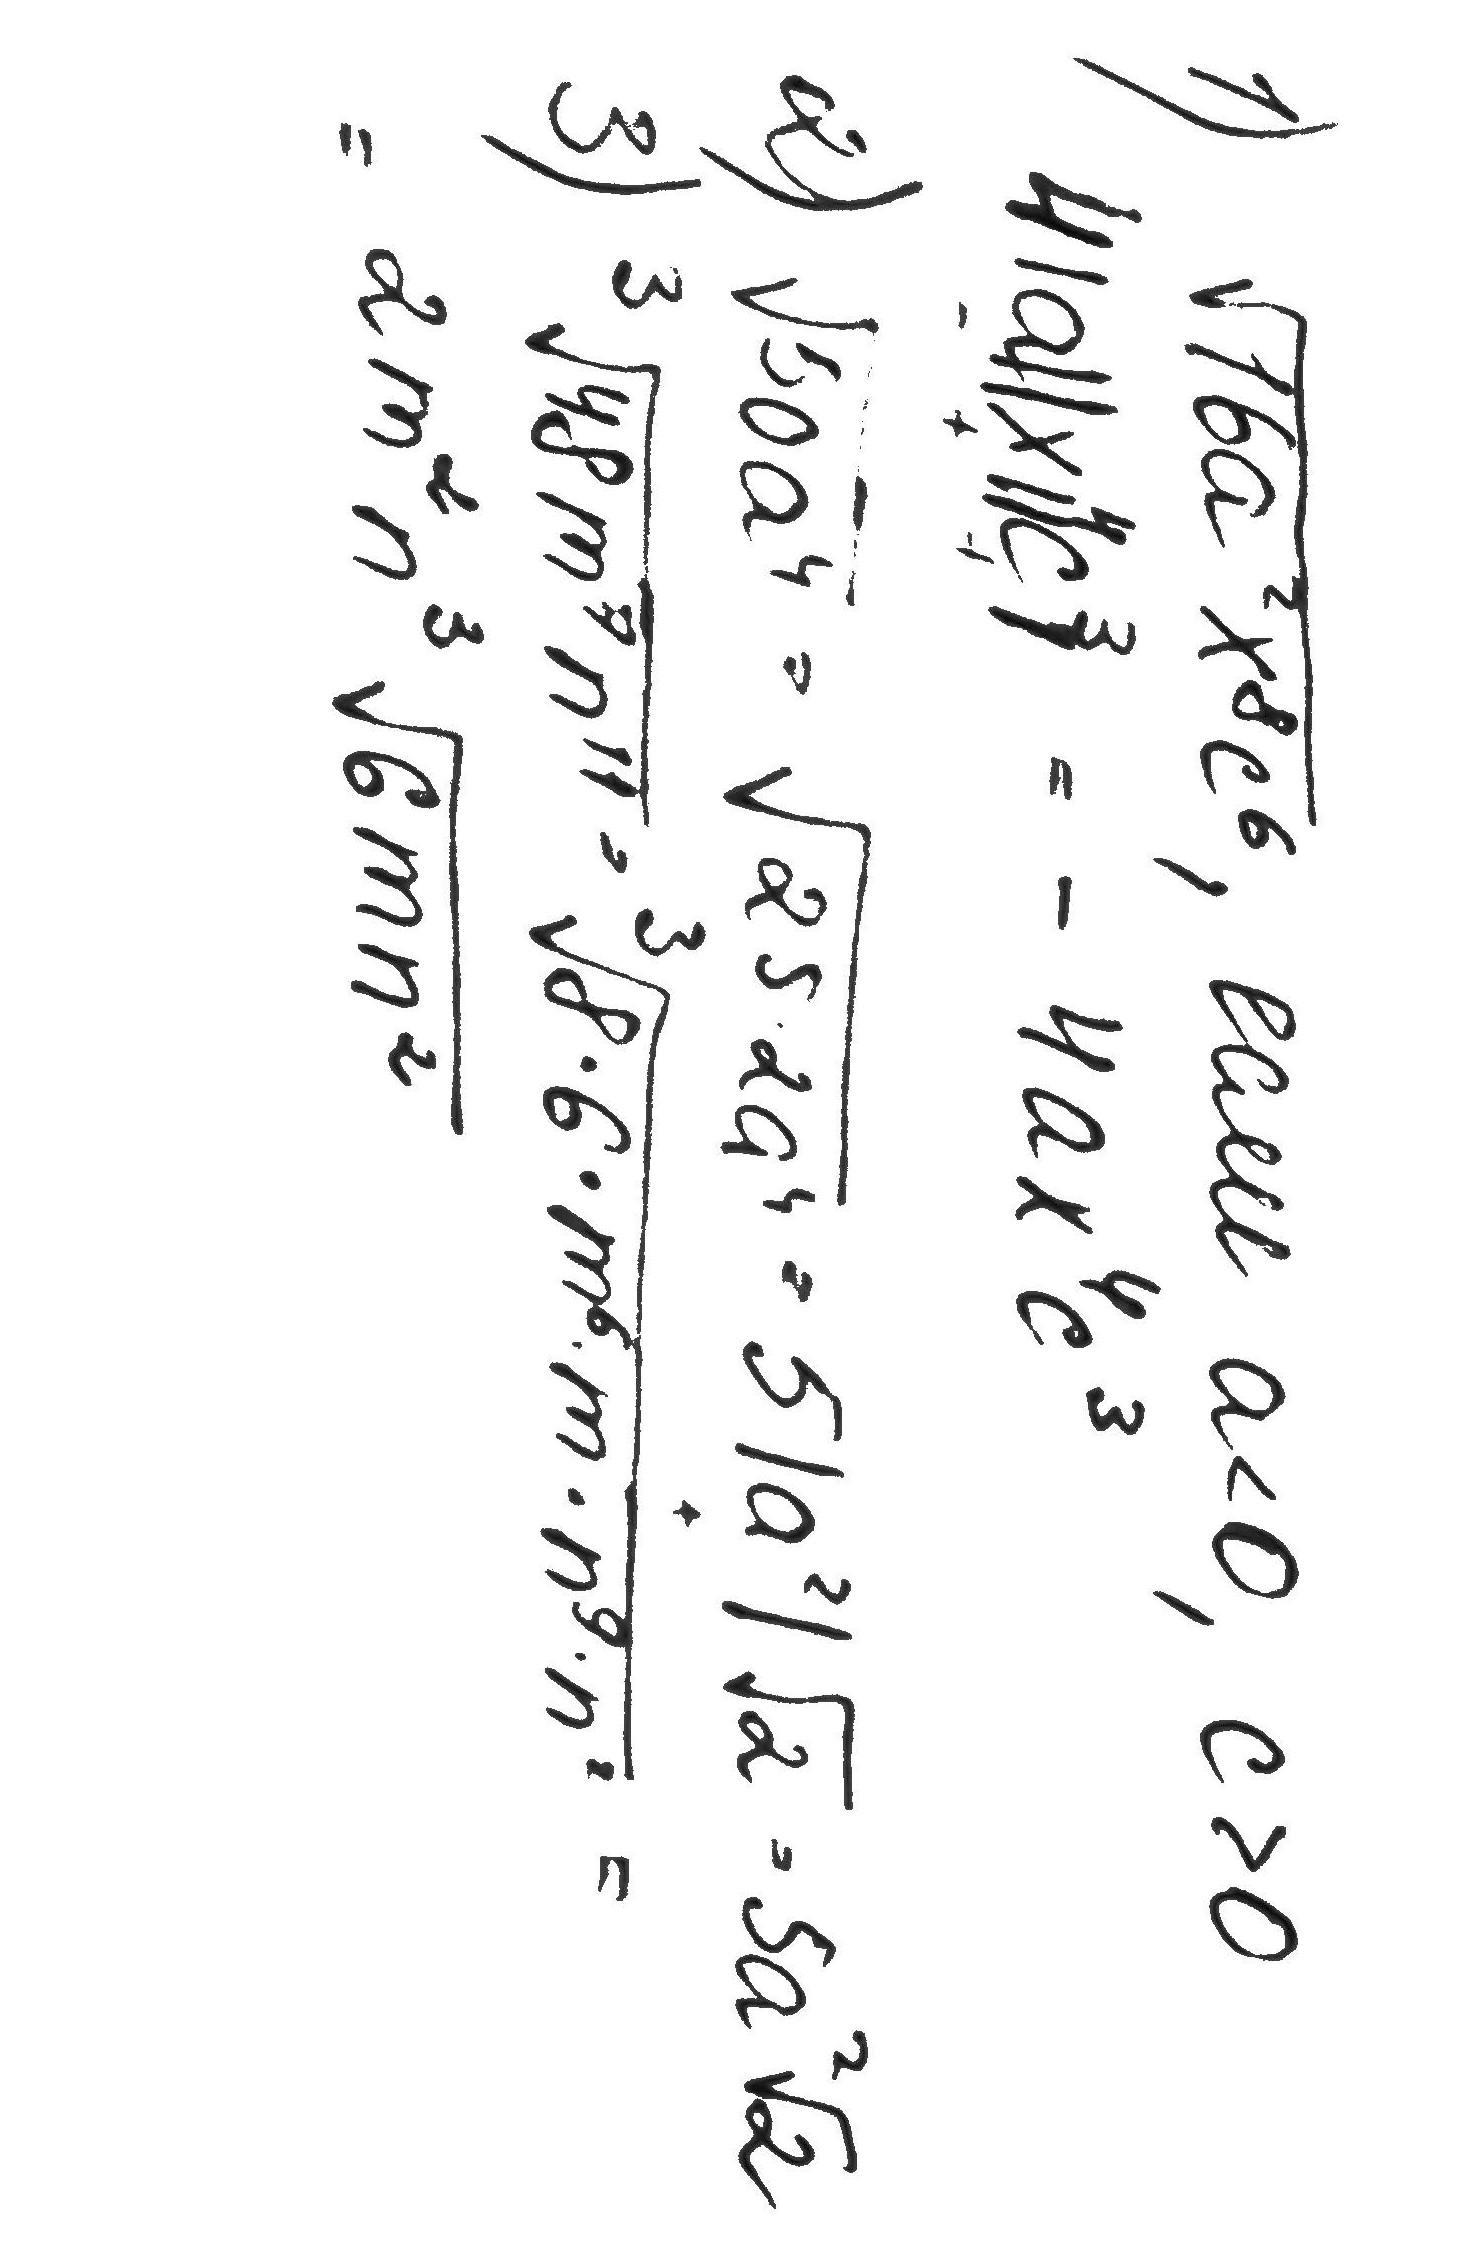 1) √16a²x⁸c⁶, если a<0, c>0
4|a||x⁴||c³| = - 4ax⁴c³
- + +
2) √50a⁴ = √25·2a⁴ = 5|a²|√2 = 5a²√2
+
3) ³√48m⁷n¹¹ = ³√8·6·m⁶·m·n⁹·n² =
= 2m²n³ √6mn²